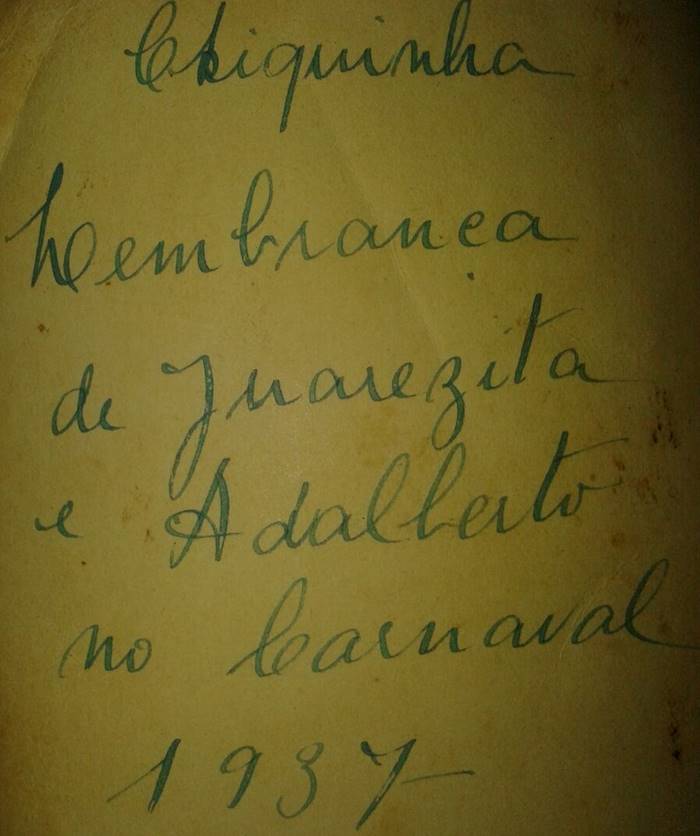 Chiquinha
Lembranca
de Juarezita
e Adalberto
no Carnaval
1937